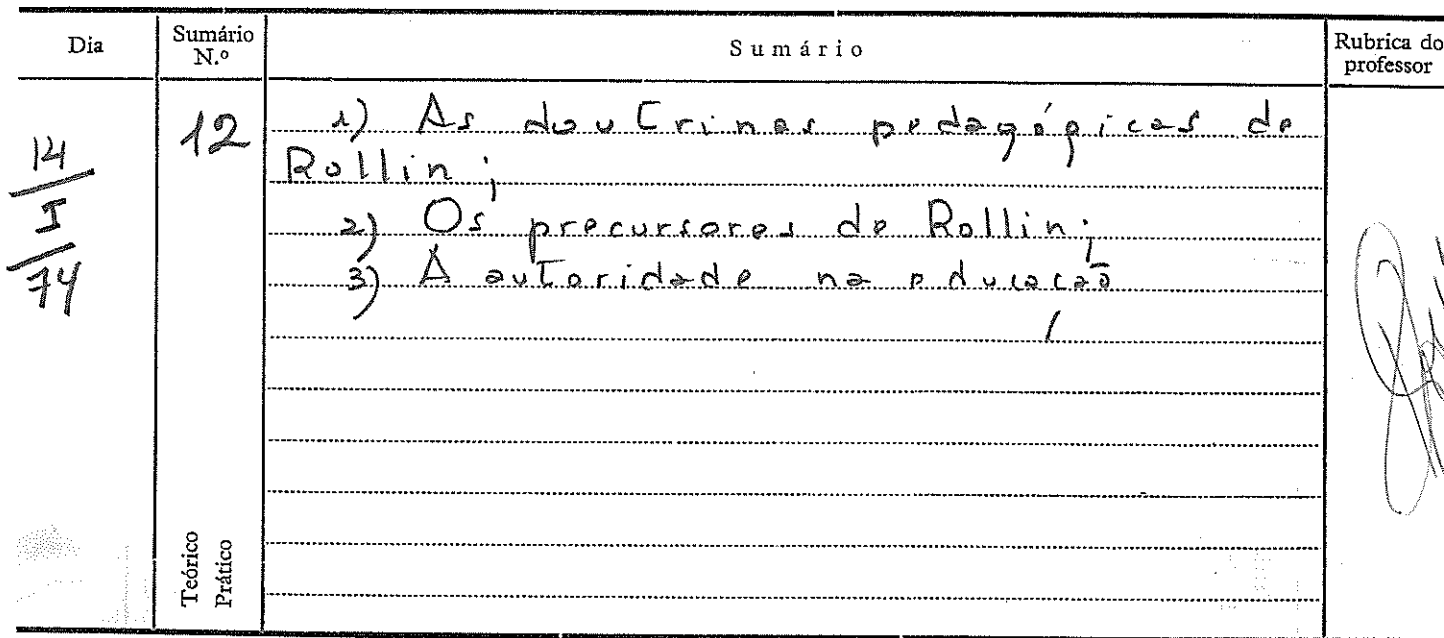 Dia
Sumário N.º
Sumário
Rubrica do professor
14
I
74
12
1) As doutrinas pedagógicas de
Rollin;
2) Os precursores de Rollin;
3) A autoridade na educação
Teórico
Prático